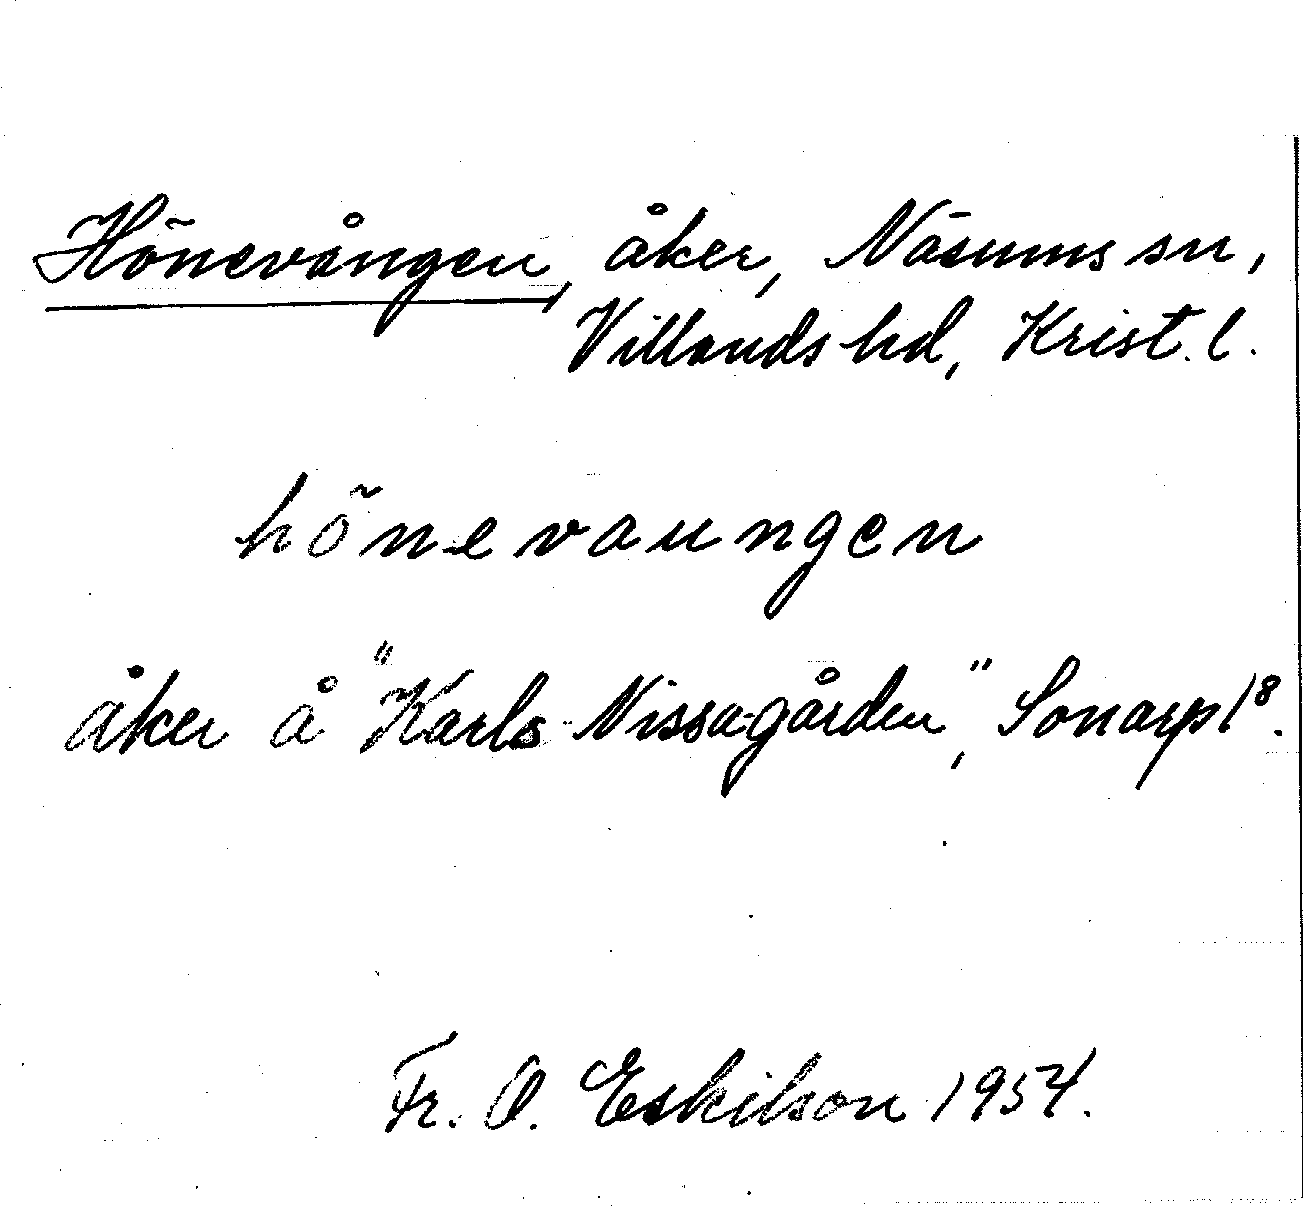 Hönevången, åker, Näsums sn,
Villands hd, Krist. l.
hönevaungen
åker å "Karls-Nissagården", Sonarp 1⁸.
Fr. O. Eskilson 1954.